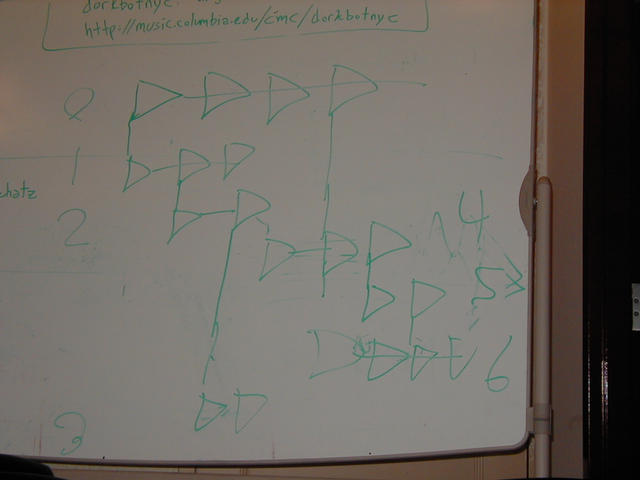 dorkbotnyc.
http://music.columbia.edu/cmc/dorkbotnyc
0
1
chatz
2
4
5
6
3